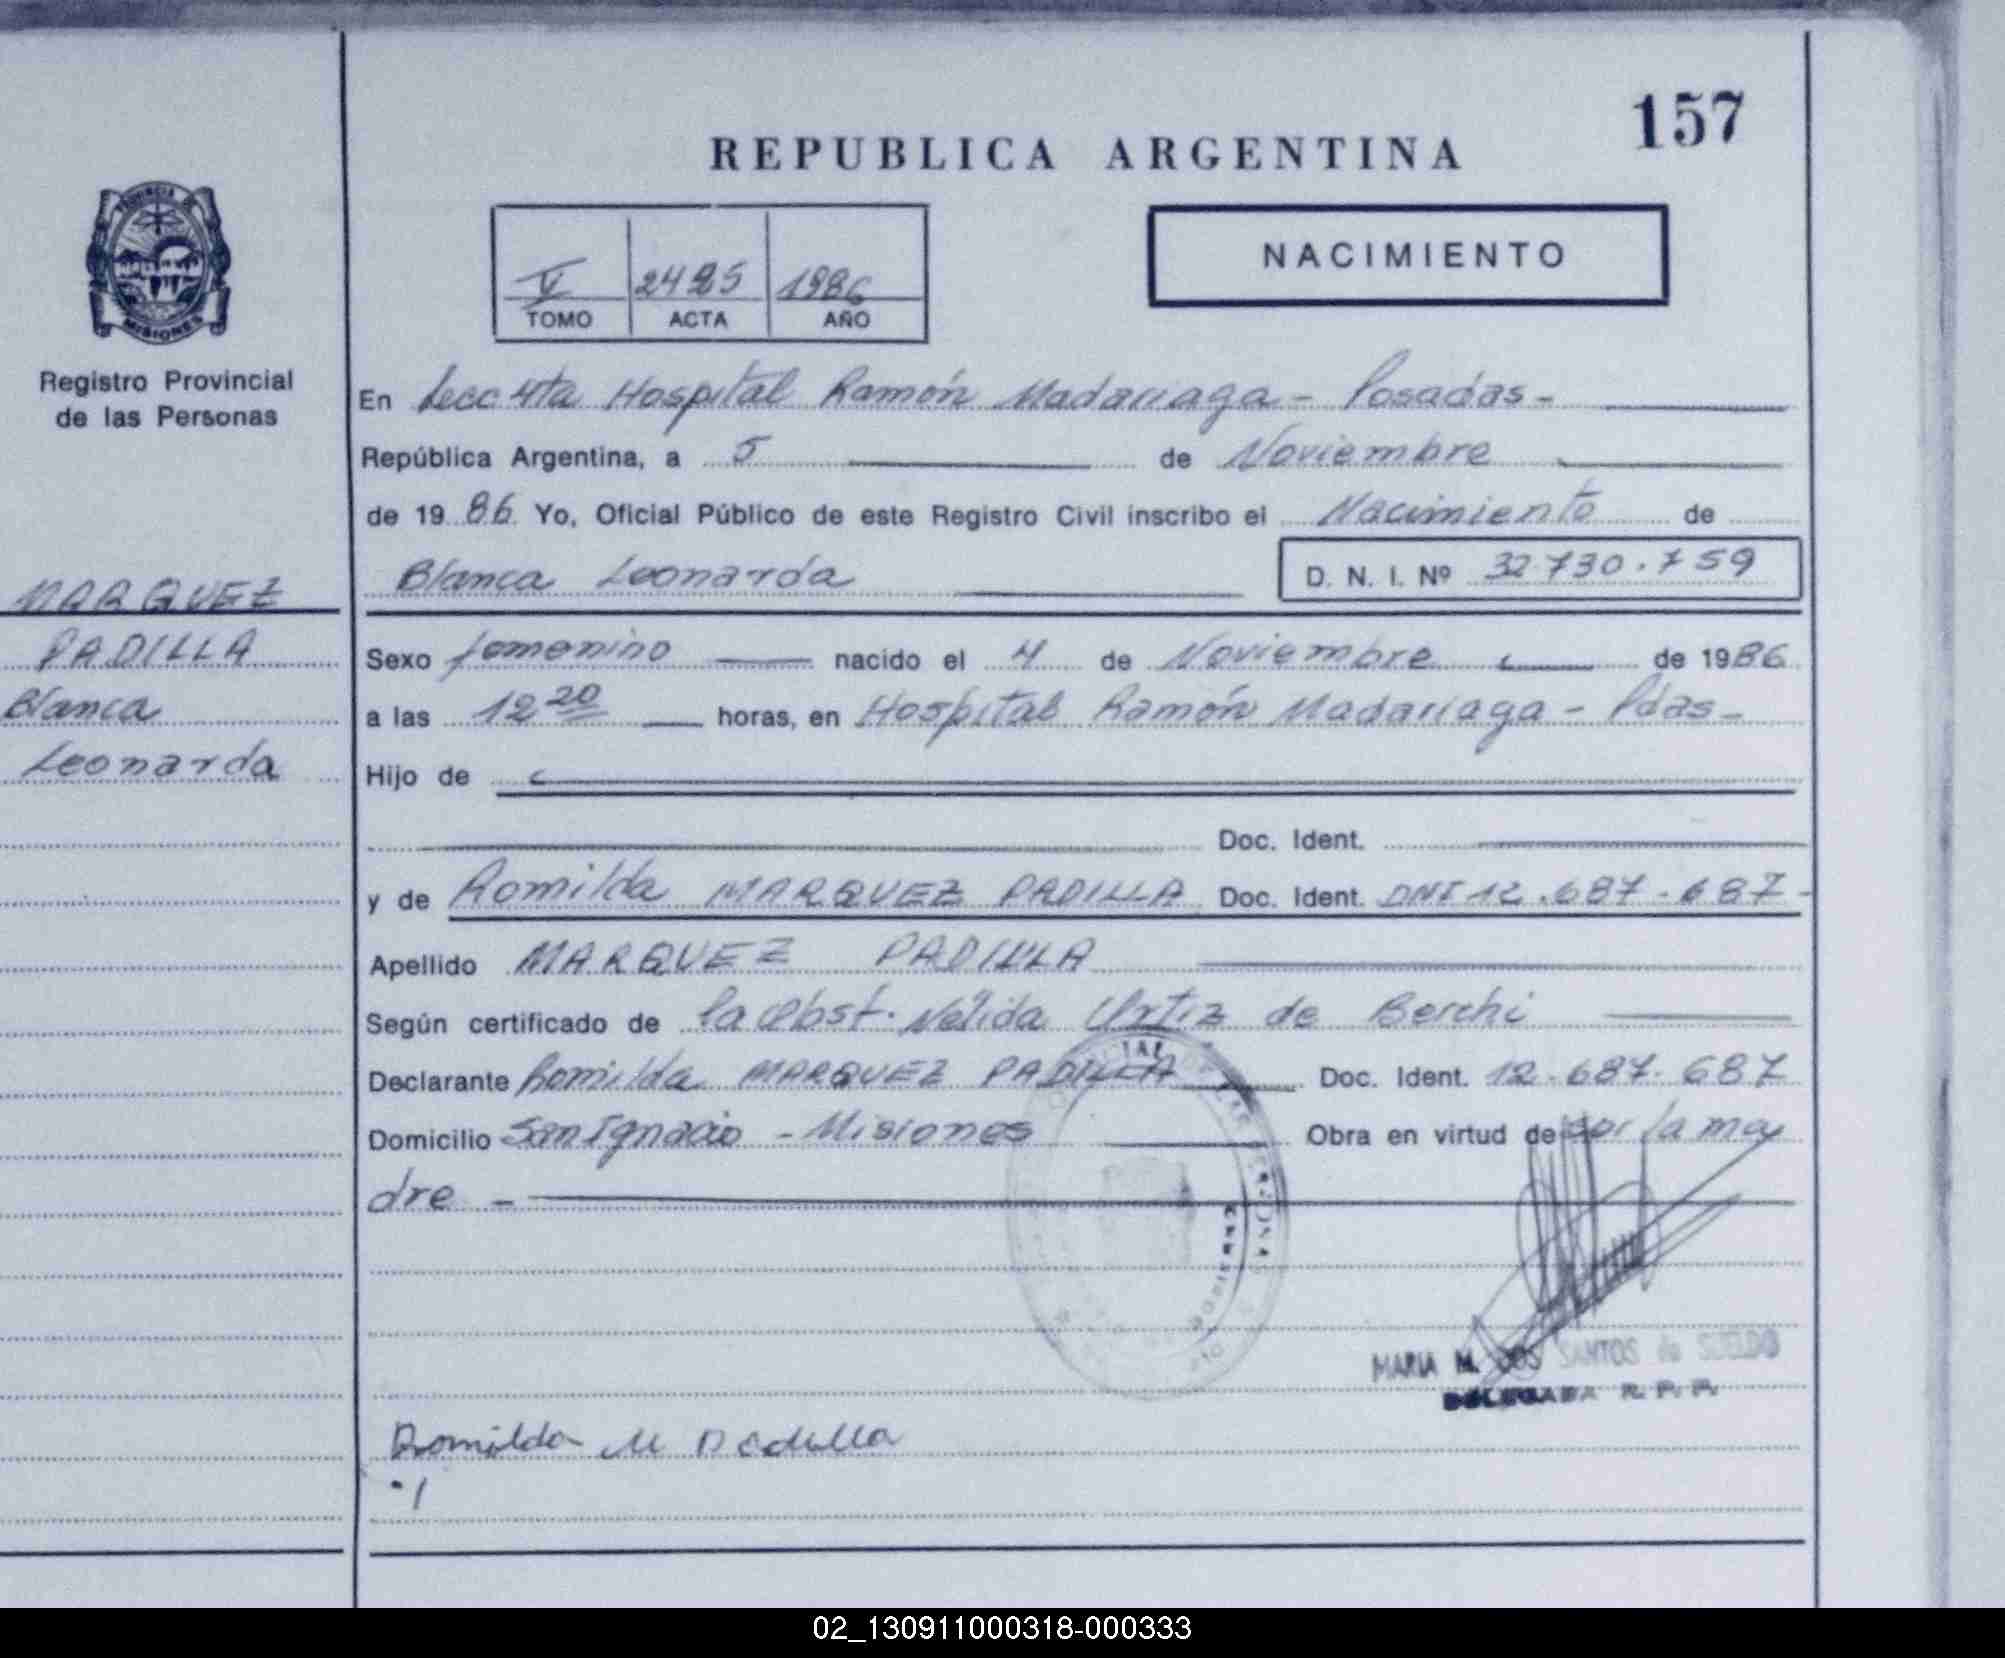 157
REPUBLICA ARGENTINA
NACIMIENTO
V 2485 1986
TOMO ACTA AÑO
PROVINCIA DE
MISIONES
Registro Provincial
de las Personas
MARQUEZ
PADILLA
Blanca
Leonarda
En Secc 4ta Hospital Ramón Madariaga - Posadas -
República Argentina, a 5 de Noviembre
de 1986 Yo, Oficial Público de este Registro Civil inscribo el Nacimiento de
Blanca Leonarda D. N. I. Nº 32.730.759
Sexo femenino nacido el 4 de Noviembre de 1986
a las 12 20 horas, en Hospital Ramón Madariaga - Pdas -
Hijo de
Doc. Ident.
y de Romilda MARQUEZ PADILLA Doc. Ident. DNI 12.687.687-
Apellido MARQUEZ PADILLA
Según certificado de la Obst. Nélida Ortiz de Berchi
Declarante Romilda MARQUEZ PADILLA Doc. Ident. 12.687.687
Domicilio San Ignacio - Misiones Obra en virtud de ser la ma
dre -
MARIA M. DOS SANTOS de SUELDO
DELEGADA R. P. P.
Romilda M Padilla
02_130911000318-000333